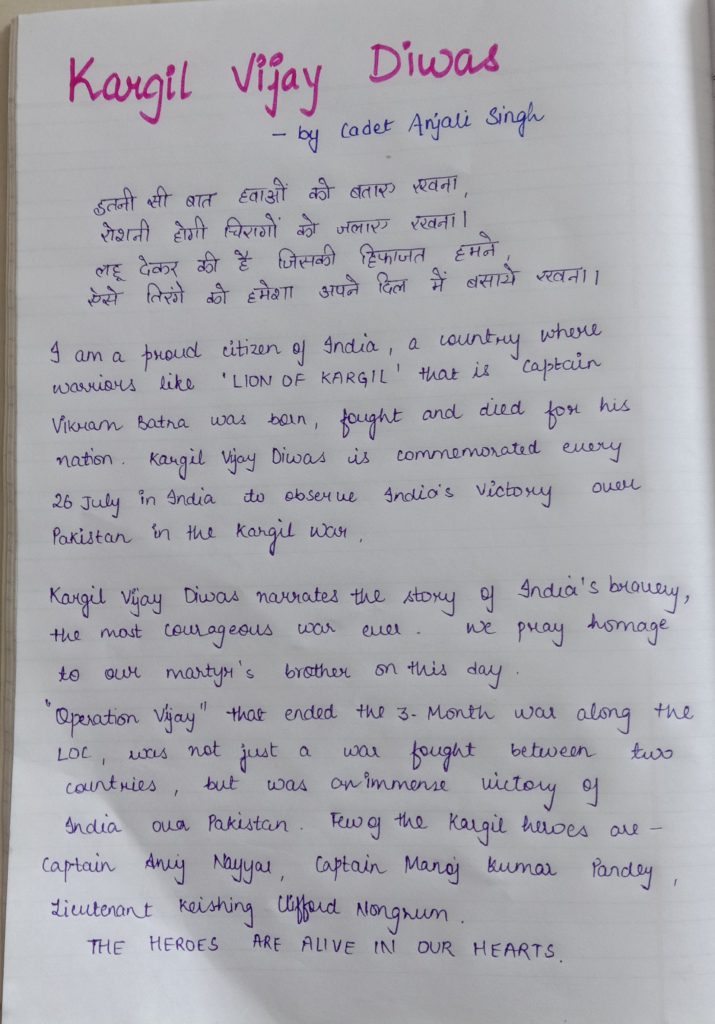 Kargil Vijay Diwas
- by Cadet Anjali Singh
इतनी सी बात हवाओं को बताए रखना,
रोशनी होगी चिरागों को जलाए रखना।
लहू देकर की है जिसकी हिफाजत हमने,
ऐसे तिरंगे को हमेशा अपने दिल में बसाये रखना।
I am a proud citizen of India, a country where
warriors like 'LION OF KARGIL' that is Captain
Vikram Batra was born, fought and died for his
nation. Kargil Vijay Diwas is commemorated every
26 July in India to observe India's victory over
Pakistan in the Kargil war.
Kargil Vijay Diwas narrates the story of India's bravery,
the most courageous war ever. We pray homage
to our martyr's brother on this day.
"Operation Vijay" that ended the 3-Month war along the
LOC, was not just a war fought between two
countries, but was an immense victory of
India over Pakistan. Few of the Kargil heroes are -
Captain Anuj Nayyar, Captain Manoj Kumar Pandey,
Lieutenant Keishing Clifford Nongrum.
THE HEROES ARE ALIVE IN OUR HEARTS.